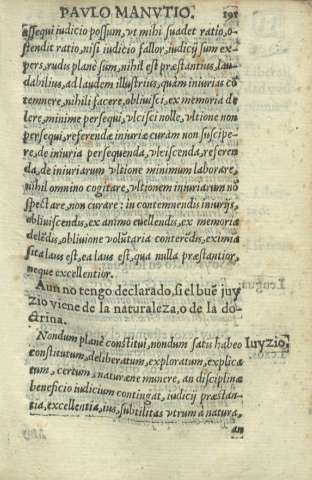 PAVLO MANVTIO. 101
assequi iudicio possum, vt mihi suadet ratio, o-
stendit ratio, nisi iudicio fallor, iudicij sum ex
pers, rudis planè sum, nihil est præstantius, lau
dabilius, ad laudem illustrius, quàm iniurias cō
temnere, nihili facere, obliuisci, ex memoria de
lere, minime persequi, vlcisci nolle, vltione non
persequi, referendæ iniuriæ curam non suscipe-
re, de iniuria persequenda, vlciscenda, referen
da, de iniuriarum vltione minimum laborare,
nihil omnino cogitare, vltionem iniuriarum nō
spectare, non curare: in contemnendis iniurijs,
obliuiscendis, ex animo euellendis, ex memoria
delēdis, obliuione volūtaria conterēdis, eximia
sita laus est, ea laus est, qua nulla præstantior,
neque excellentior.
Aun no tengo declarado, si el buē juy
zio viene de la naturaleza, o de la do-
ctrina.
Nondum planè constitui, nondum satis habeo Iuyzio.
constitutum, deliberatum, exploratum, explica
tum, certum, naturæ ne munere, an disciplinæ
beneficio iudicium contingat, iudicij præstan-
tia, excellentia, ius, subtilitas vtrum à natura,
an